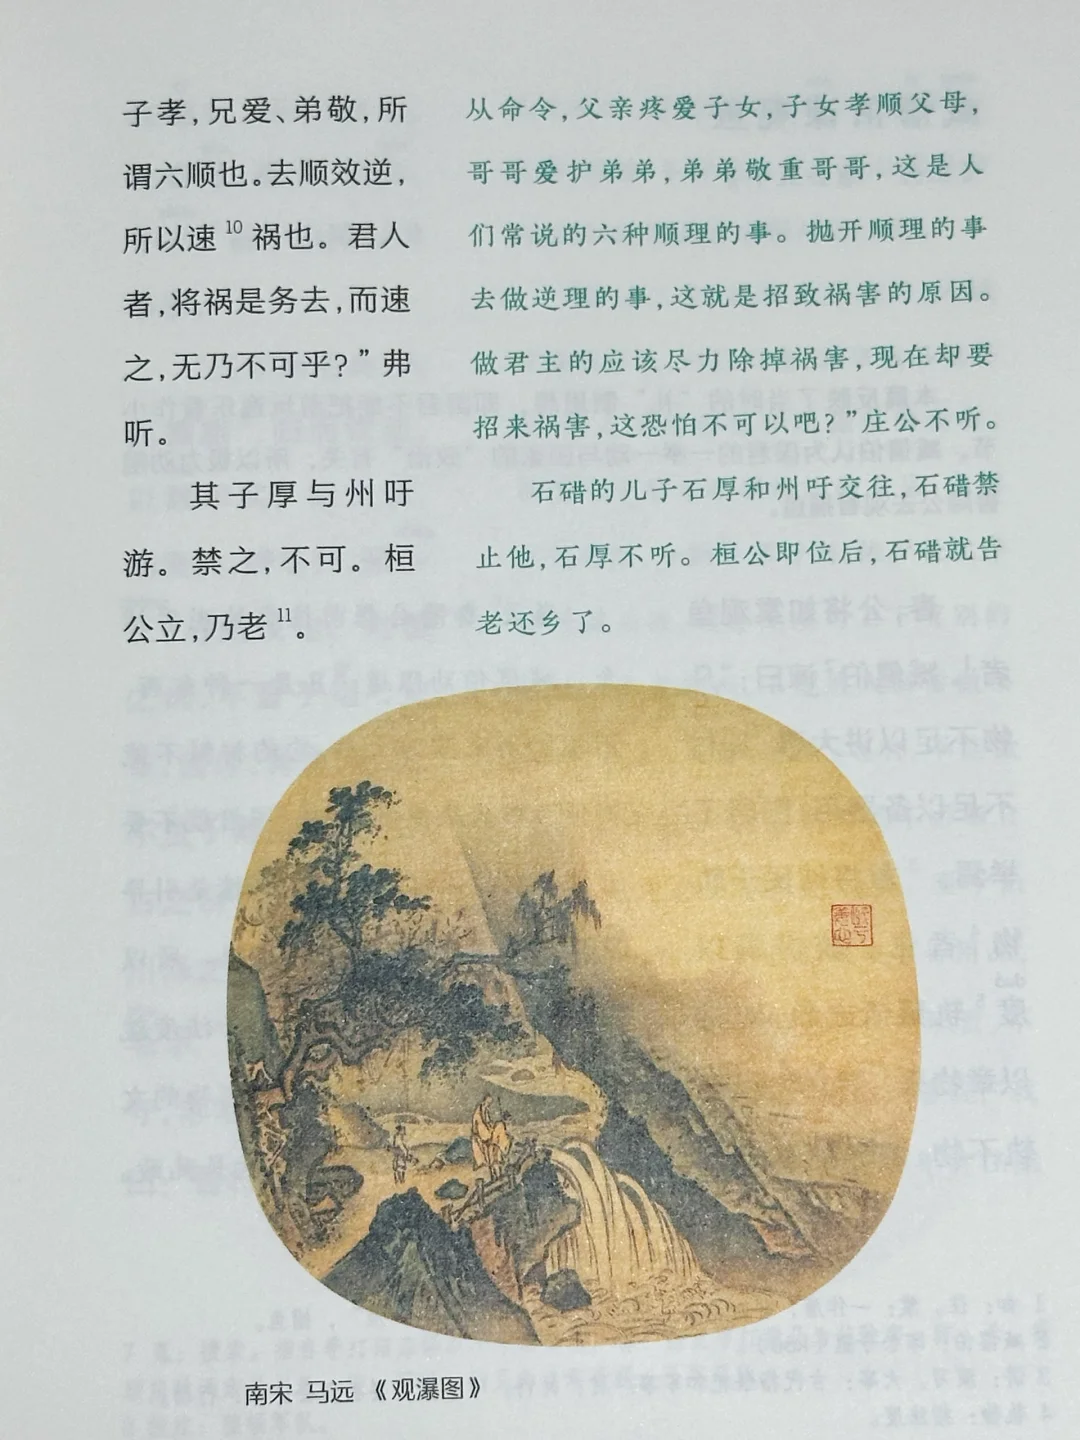 子孝，兄爱、弟敬，所
谓六顺也。去顺效逆，
所以速10祸也。君人
者，将祸是务去，而速
之，无乃不可乎？”弗
听。
其子厚与州吁
游。禁之，不可。桓
公立，乃老11。
从命令，父亲疼爱子女，子女孝顺父母，
哥哥爱护弟弟，弟弟敬重哥哥，这是人
们常说的六种顺理的事。抛开顺理的事
去做逆理的事，这就是招致祸害的原因。
做君主的应该尽力除掉祸害，现在却要
招来祸害，这恐怕不可以吧？”庄公不听。
石碏的儿子石厚和州吁交往，石碏禁
止他，石厚不听。桓公即位后，石碏就告
老还乡了。
南宋 马远《观瀑图》